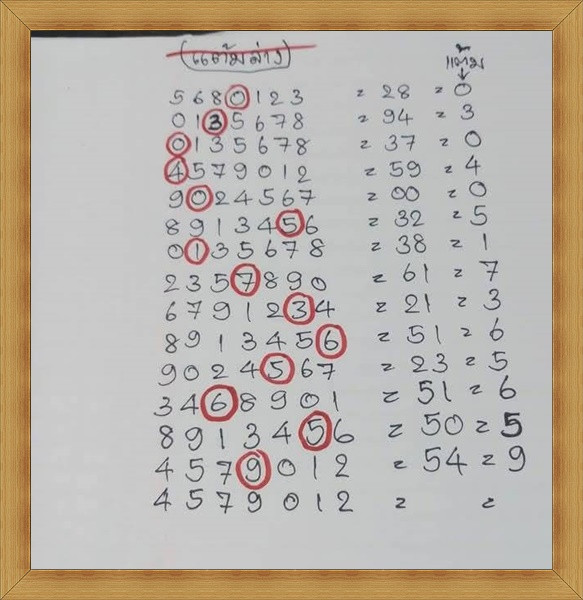 (แต้มล่าง)
แต้ม
5 6 8 0 1 2 3 = 28 = 0
0 1 3 5 6 7 8 = 94 = 3
0 1 3 5 6 7 8 = 37 = 0
4 5 7 9 0 1 2 = 59 = 4
9 0 2 4 5 6 7 = 00 = 0
8 9 1 3 4 5 6 = 32 = 5
0 1 3 5 6 7 8 = 38 = 1
2 3 5 7 8 9 0 = 61 = 7
6 7 9 1 2 3 4 = 21 = 3
8 9 1 3 4 5 6 = 51 = 6
9 0 2 4 5 6 7 = 23 = 5
3 4 6 8 9 0 1 = 51 = 6
8 9 1 3 4 5 6 = 50 = 5
4 5 7 9 0 1 2 = 54 = 9
4 5 7 9 0 1 2 = =